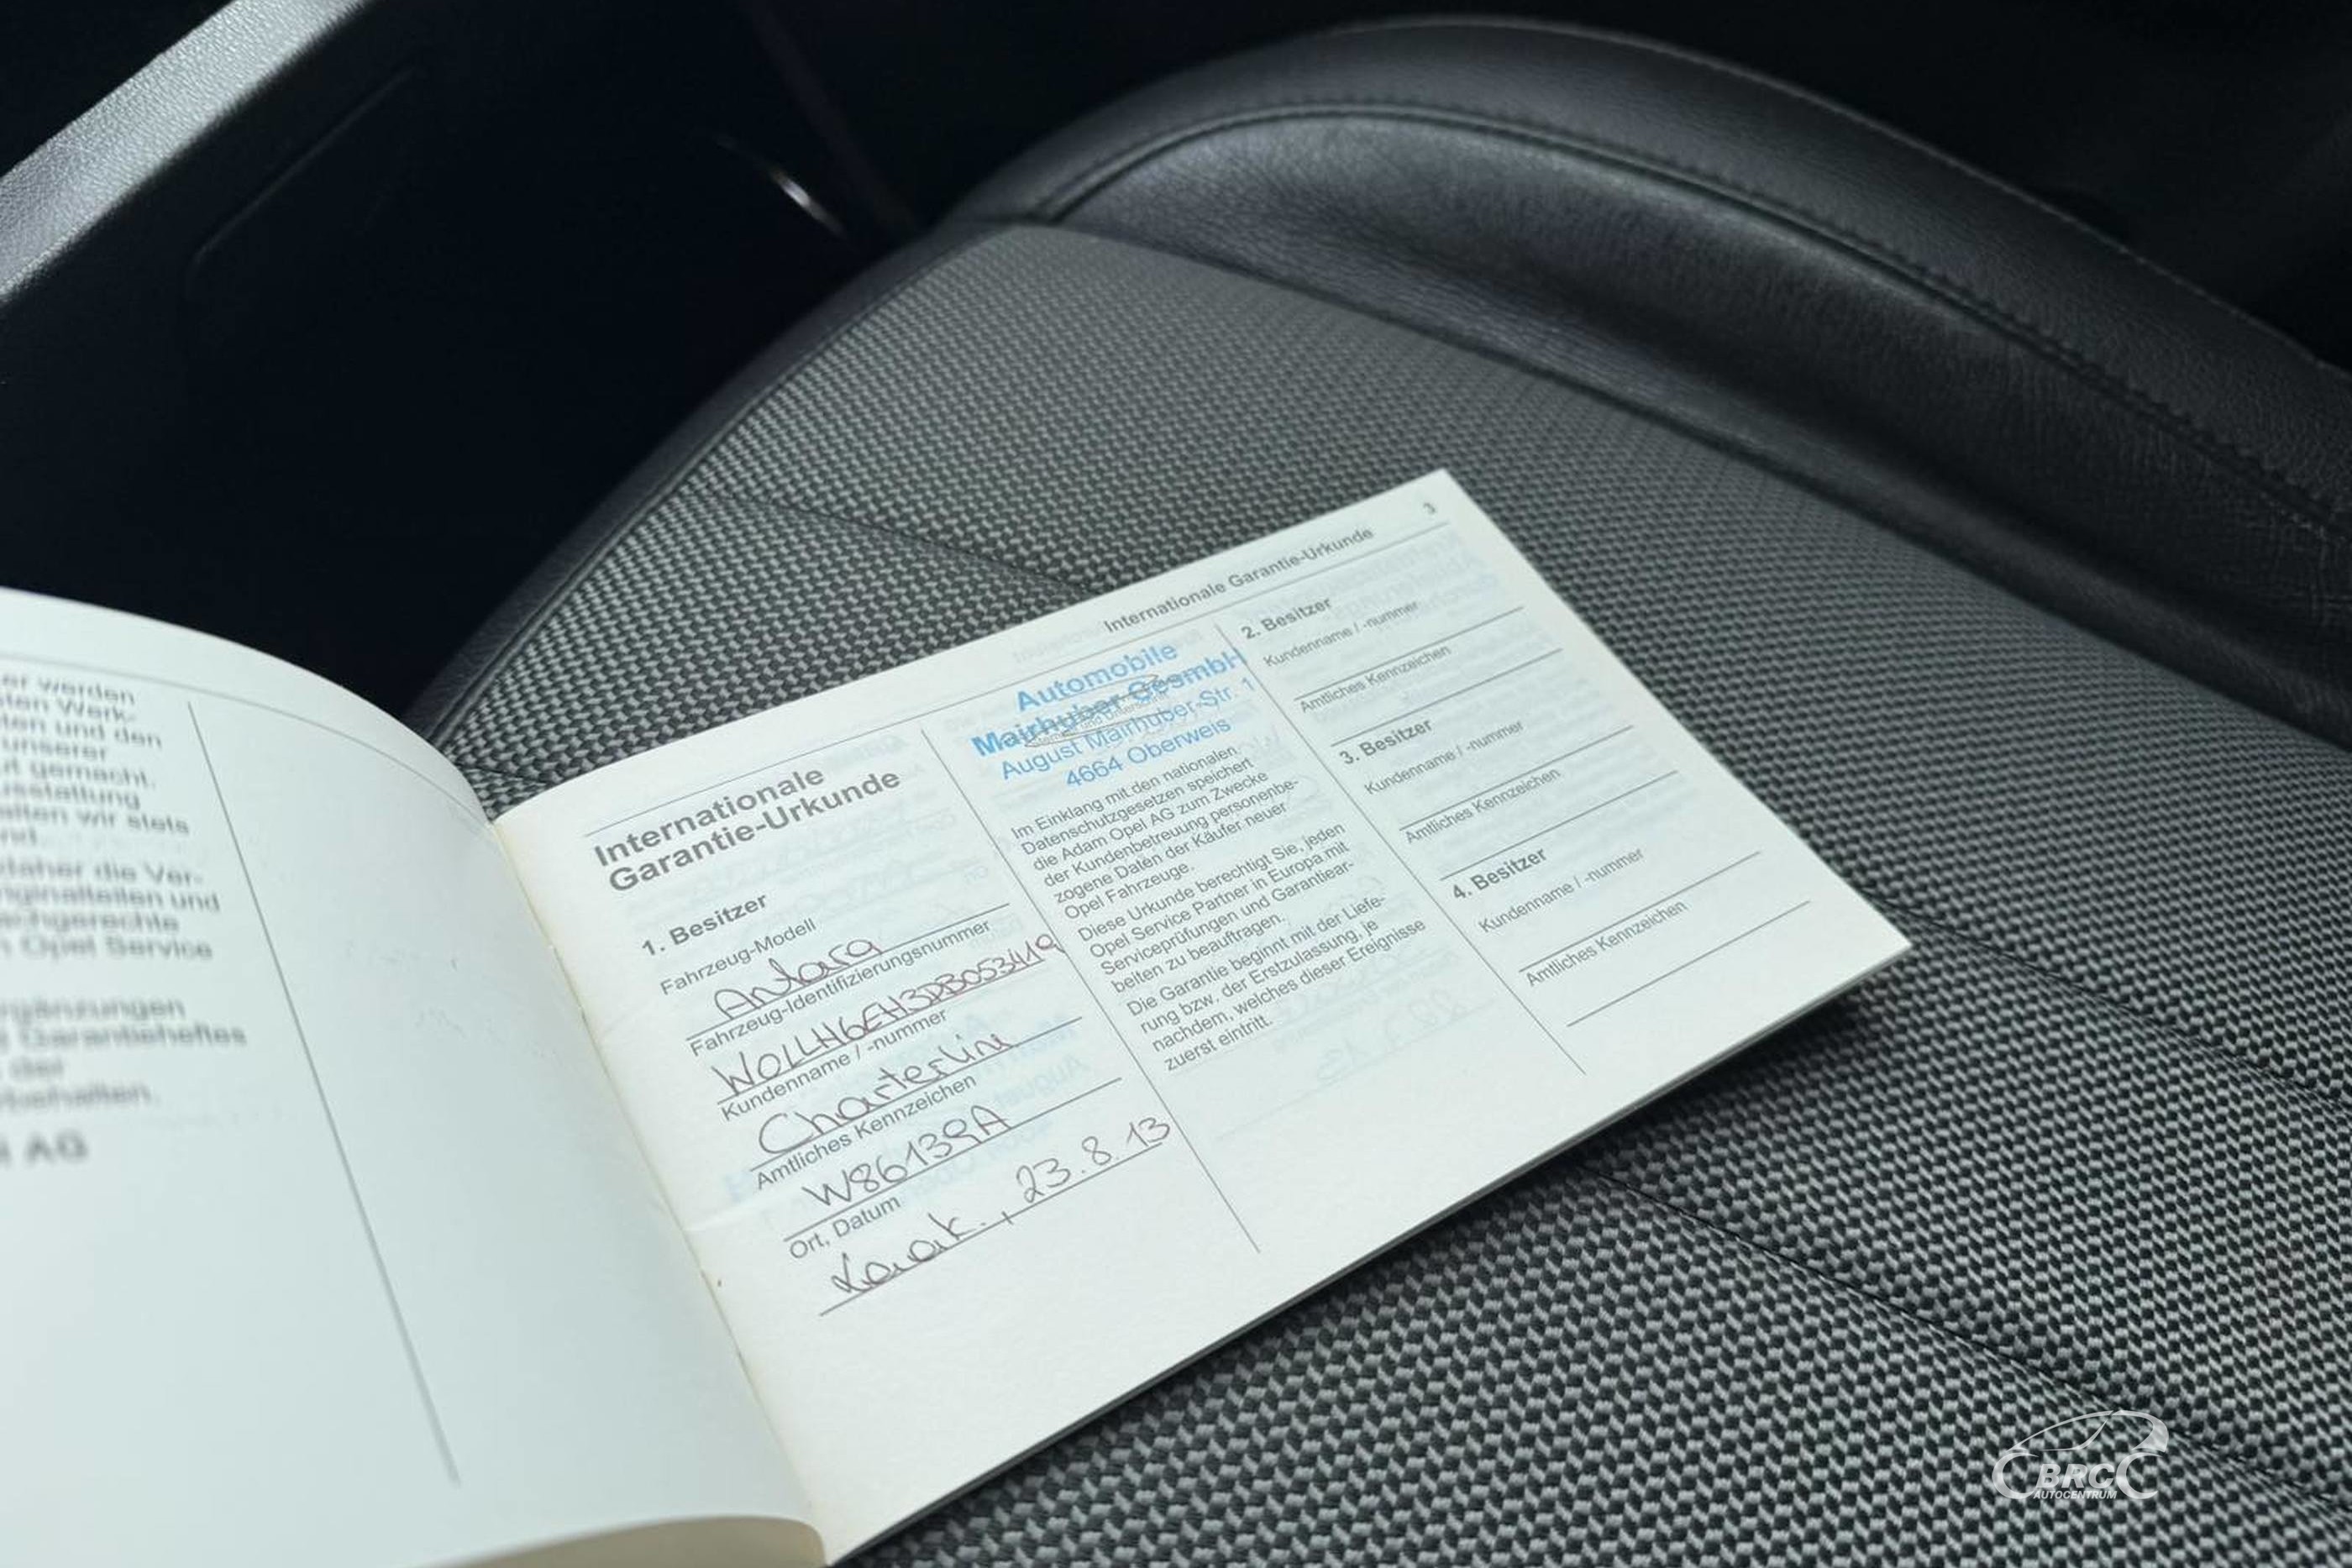 er werden
ten Werk-
den und den
unserer
gemacht.
alten wir stets
nd.
daher die Ver-
riginalteilen und
achgerechte
Opel Service
rgänzungen
Garantieheftes
der
AG
Internationale Garantie-Urkunde 3
Internationale
Garantie-Urkunde
1. Besitzer
Fahrzeug-Modell
Antara
Fahrzeug-Identifizierungsnummer
W0LLH6EH3DB053419
Kundenname / -nummer
Charterline
Amtliches Kennzeichen
W86139A
Ort, Datum
Laak., 23.8.13
Automobile
Mairhuber GesmbH
August Mairhuber-Str. 1
4664 Oberweis
Im Einklang mit den nationalen
Datenschutzgesetzen speichert
die Adam Opel AG zum Zwecke
der Kundenbetreuung personenbe-
zogene Daten der Käufer neuer
Opel Fahrzeuge.
Diese Urkunde berechtigt Sie, jeden
Opel Service Partner in Europa mit
Serviceprüfungen und Garantiear-
beiten zu beauftragen.
Die Garantie beginnt mit der Liefe-
rung bzw. der Erstzulassung, je
nachdem, welches dieser Ereignisse
zuerst eintritt.
2. Besitzer
Kundenname / -nummer
Amtliches Kennzeichen
3. Besitzer
Kundenname / -nummer
Amtliches Kennzeichen
4. Besitzer
Kundenname / -nummer
Amtliches Kennzeichen
BRC
AUTOCENTRUM